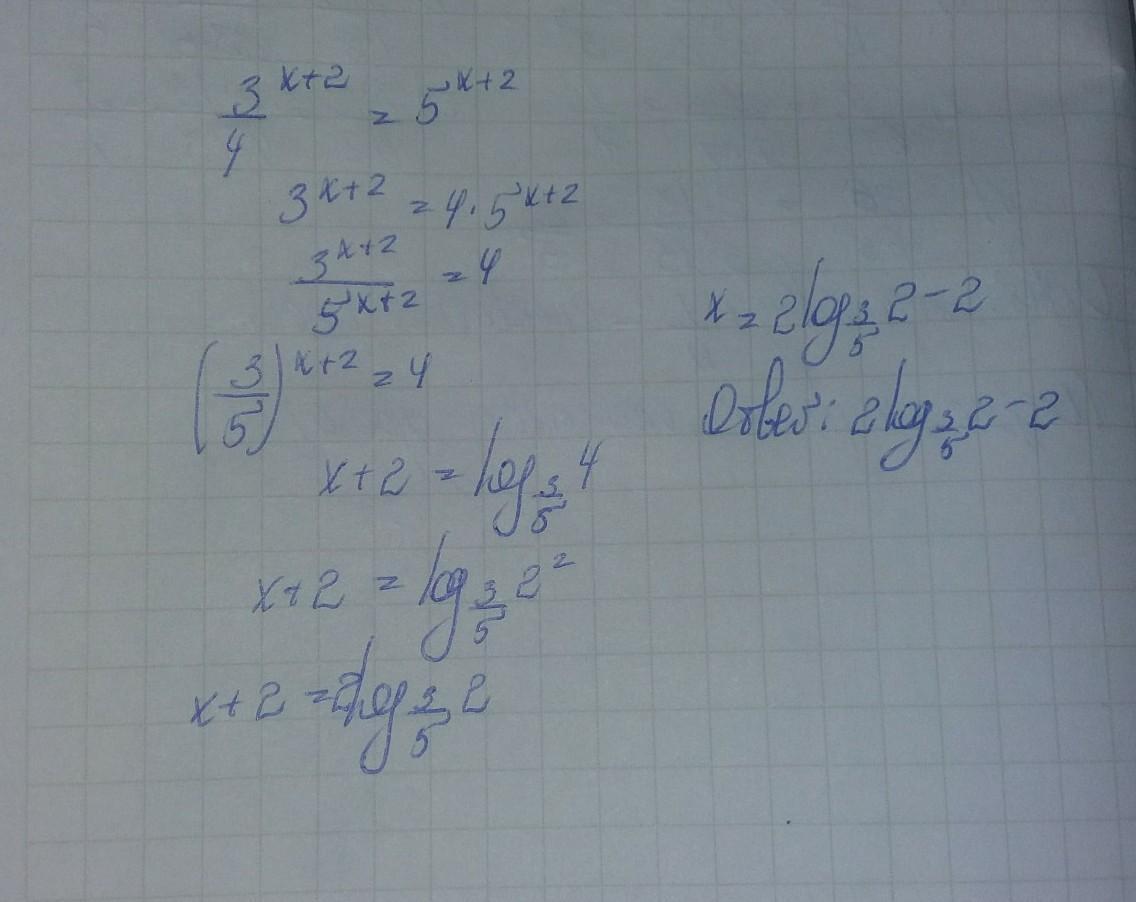 3^(x+2)/4 = 5^(x+2)
3^(x+2) = 4 · 5^(x+2)
3^(x+2)/5^(x+2) = 4
(3/5)^(x+2) = 4
x+2 = log_(3/5) 4
x+2 = log_(3/5) 2^2
x+2 = 2log_(3/5) 2
x = 2log_(3/5) 2 - 2
Ответ: 2log_(3/5) 2 - 2